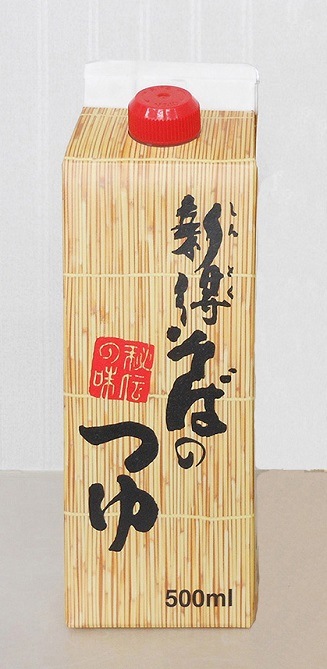 新得そばの
しんとく
つゆ
秘伝
の味
500ml